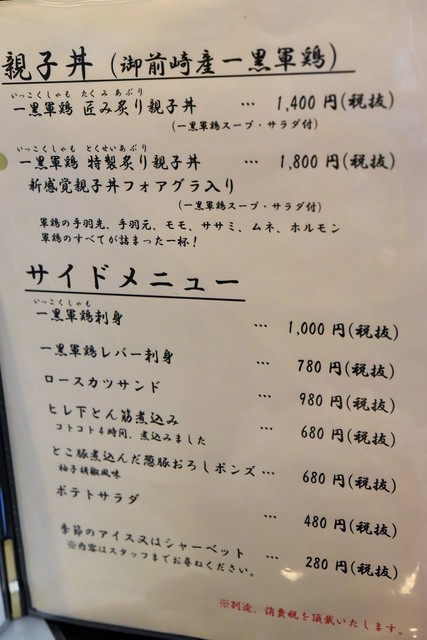 親子丼（御前崎産一黒軍鶏）
いっこくしゃも たくみあぶり
一黒軍鶏 匠み炙り親子丼 … 1,400円(税抜)
(一黒軍鶏スープ・サラダ付)
いっこくしゃも とくせいあぶり
一黒軍鶏 特製炙り親子丼 … 1,800円(税抜)
新感覚親子丼フォアグラ入り
(一黒軍鶏スープ・サラダ付)
軍鶏の手羽先、手羽元、モモ、ササミ、ムネ、ホルモン
軍鶏のすべてが詰まった一杯！
サイドメニュー
いっこくしゃも
一黒軍鶏刺身 … 1,000円(税抜)
一黒軍鶏レバー刺身 … 780円(税抜)
ロースカツサンド … 980円(税抜)
ヒレ下とん筋煮込み … 680円(税抜)
コトコト4時間、煮込みました
とこ豚煮込んだ葱豚おろしポンズ … 680円(税抜)
柚子胡椒風味
ポテトサラダ … 480円(税抜)
季節のアイス又はシャーベット … 280円(税抜)
※内容はスタッフまでお尋ねください。
※別途、消費税を頂戴いたします。